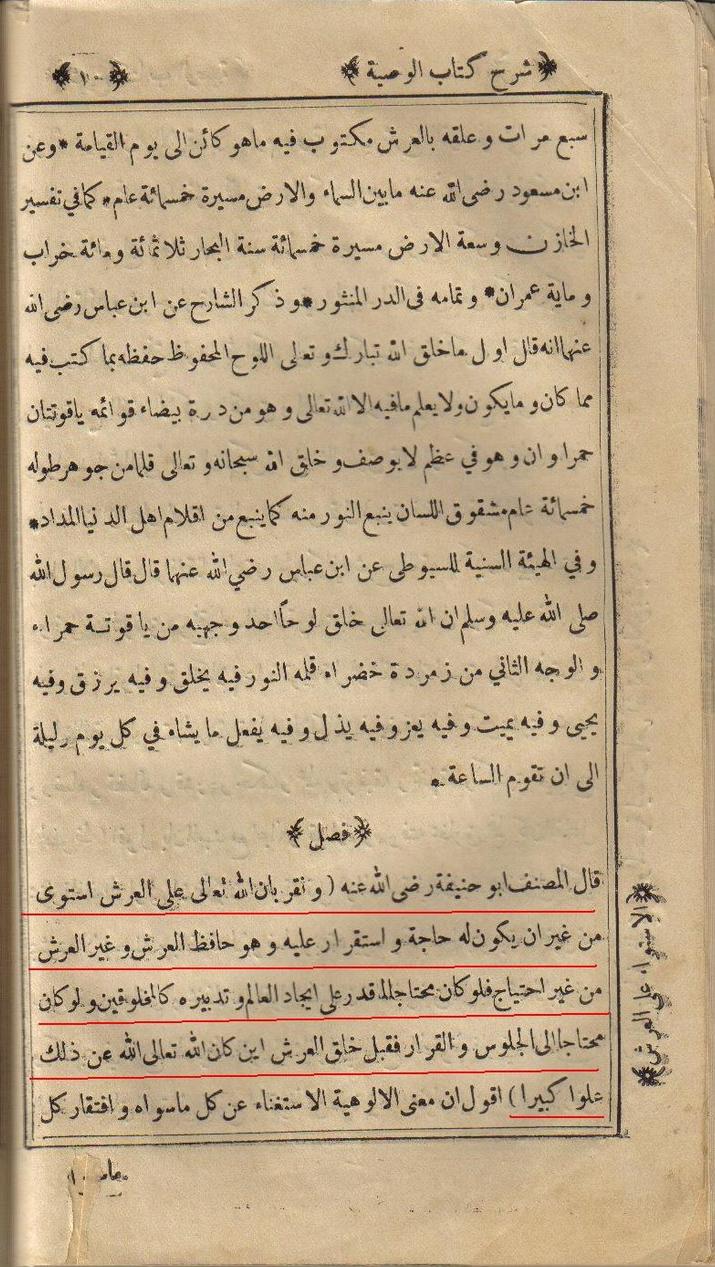 شرح كتاب الوصية
١٠
سبع مرات وعلقه بالعرش مكتوب فيه ماهو كائن الى يوم القيامة * وعن
ابن مسعود رضى الله عنه مابين السماء والارض مسيرة خمسمائة عام * كما فى تفسير
الخازن وسعة الارض مسيرة خمسمائة سنة البحار ثلاثمائة ومائة خراب
ومایة عمران * وتمامه فى الدر المنثور * وذكر الشارح عن ابن عباس رضى الله
عنهما انه قال اول ماخلق الله تبارك وتعلى اللوح المحفوظ حفظه بما كتب فيه
مما كان وما يكون ولا يعلم مافيه الا الله تعالى وهو من درة بيضاء قوائمه ياقوتتان
حمراوان وهو في عظم لا يوصف وخلق الله سبحانه و تعالى قلما من جوهر طوله
خمسمائة عام مشقوق اللسان ينبع النور منه كما ينبع من اقلام اهل الدنيا المداد *
وفي الهيئة السنية للسيوطى عن ابن عباس رضي الله عنهما قال قال رسول الله
صلى الله عليه وسلم ان الله تعالى خلق لوحاً احد وجهيه من ياقوتة حمراء
والوجه الثاني من زمردة خضراء قلمه النور فيه يخلق وفيه يرزق وفيه
يحيى وفيه يميت وفيه يعز وفيه يذل وفيه يفعل ما يشاء في كل يوم وليلة
الى ان تقوم الساعة *
فصل
قال المصنف ابو حنيفة رضى الله عنه ( ونقر بان الله تعالى على العرش استوى
من غير ان يكون له حاجة واستقرار عليه وهو حافظ العرش وغير العرش
من غير احتياج فلو كان محتاجا لما قدر على ايجاد العالم وتدبيره كالمخلوقين ولو كان
محتاجا الى الجلوس والقرار فقبل خلق العرش اين كان الله تعالى الله عن ذلك
علوا كبيرا ) اقول ان معنى الالوهية الاستغناء عن كل ماسواه وافتقار كل
الاستواء على العرش